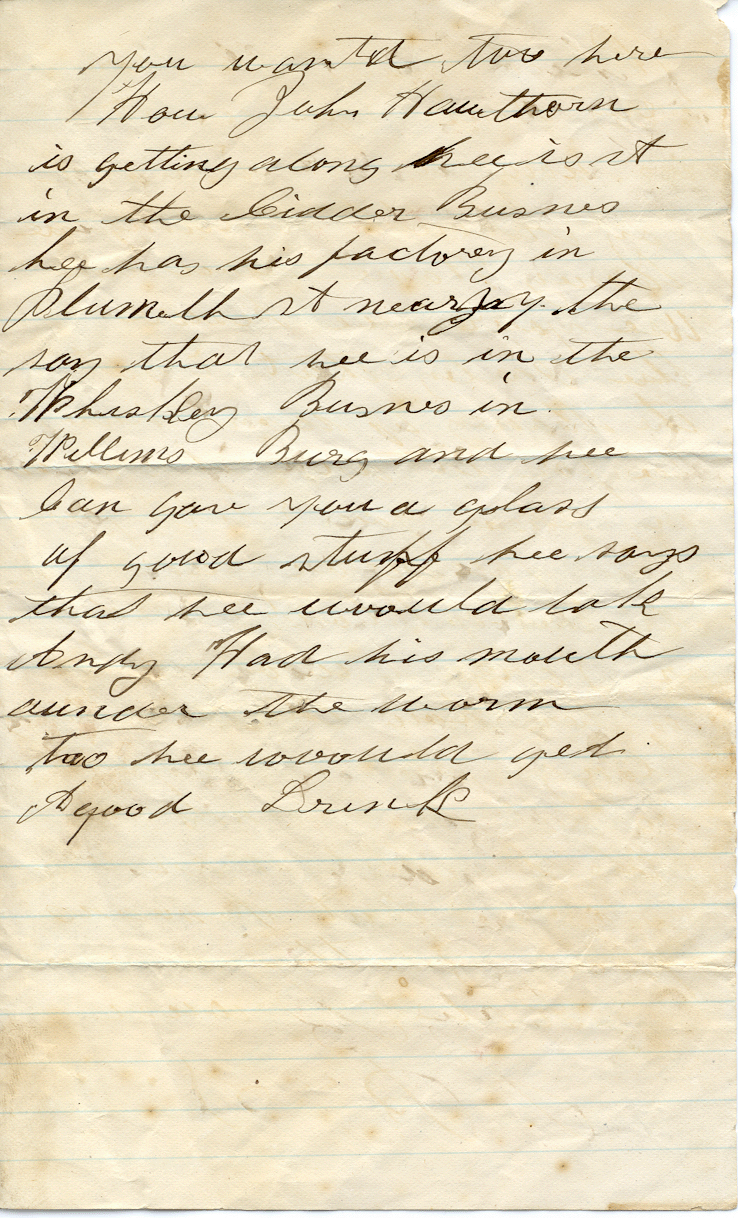 you wantd too here
How John Hawthorn
is getting along hee is st
in the Cidder Busnes
hee has his factorey in
Plumeth St near Jay the
say that hee is in the
Whuskey Busnes in
Willims Burg and hee
Can gave you a glass
of good stuff hee says
that hee wwould lak
Andy Had his mouth
aunder the worm
too hee wwould get
A good Drink